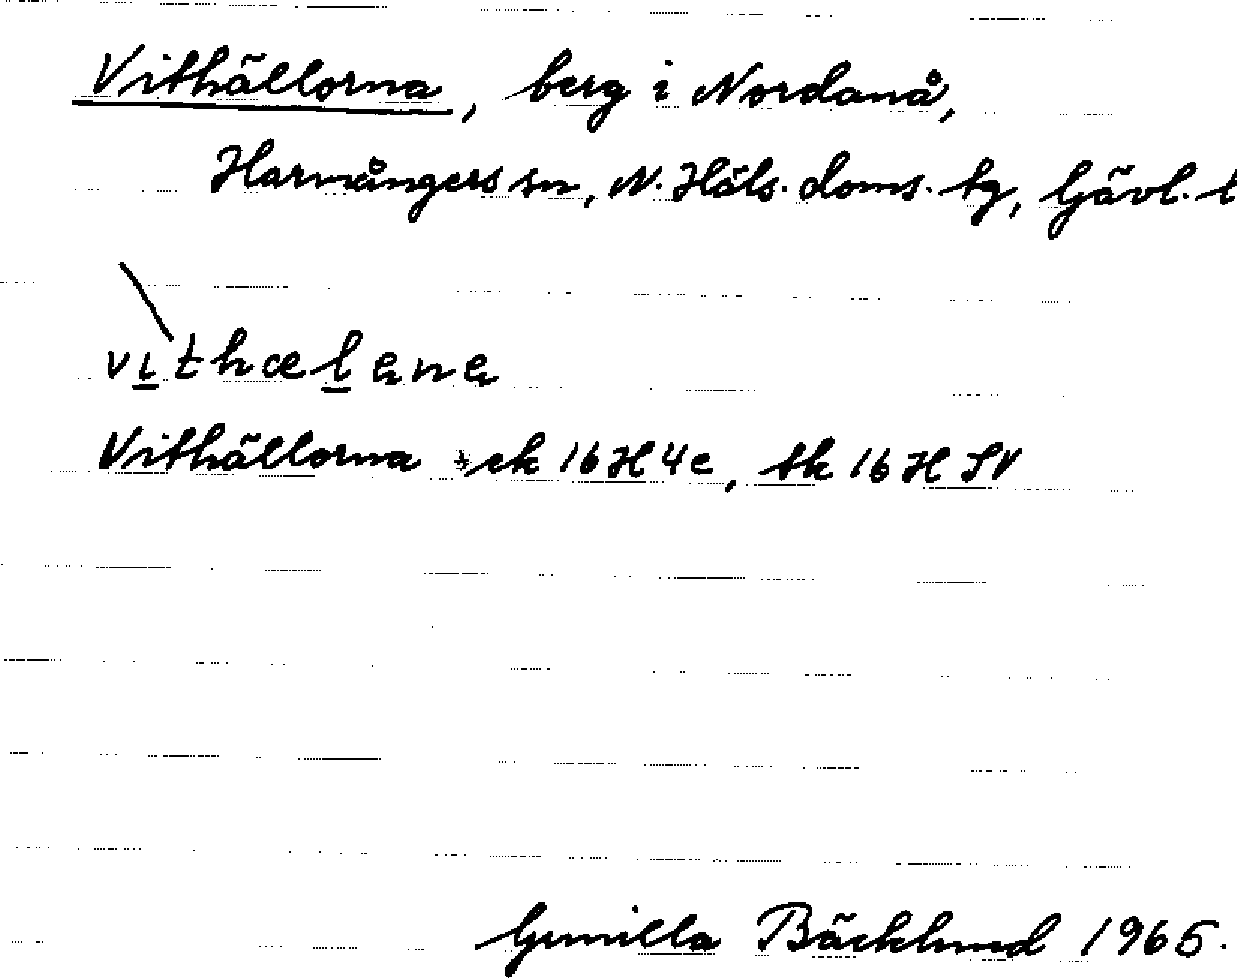 Vithällorna, berg i Nordanå,
Harmångers sn, N. Häls. doms. tg, Gävl. l
vìthælena
Vithällorna ek 16H4c, tk 16H SV
Gunilla Bäcklund 1965.